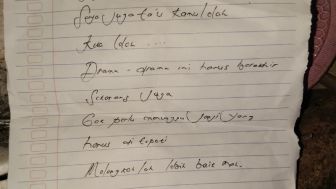 Saya juga tau kamu ldah
Kua ldah ....
Drama - drama ini harus berakhir
Sekarang juga
Gak perlu menunggu janji yang
harus di tepati
Melangkah lah lebih baik